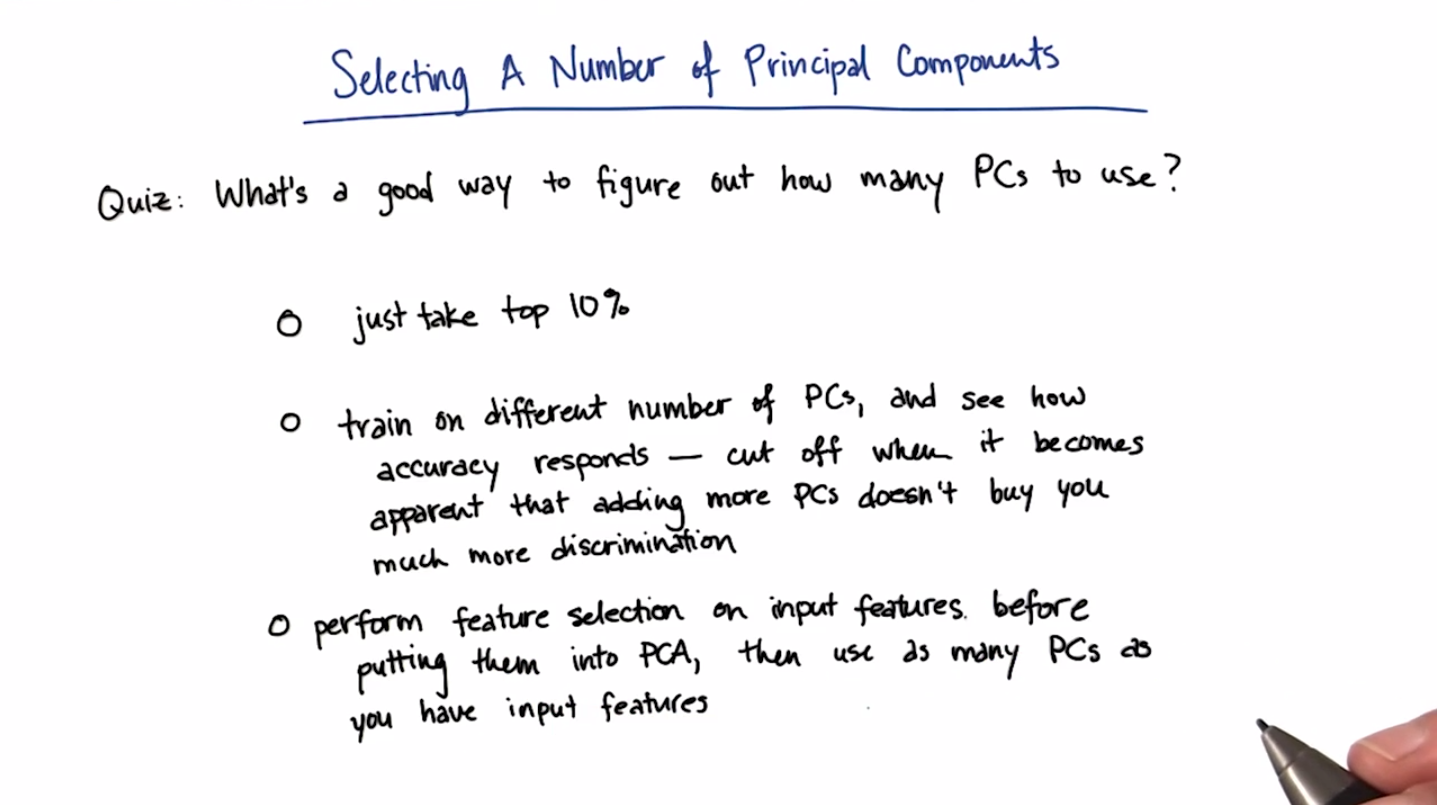 Selecting A Number of Principal Components
Quiz: What's a good way to figure out how many PCs to use?
O just take top 10%
O train on different number of PCs, and see how
accuracy responds — cut off when it becomes
apparent that adding more PCs doesn't buy you
much more discrimination
O perform feature selection on input features before
putting them into PCA, then use as many PCs as
you have input features